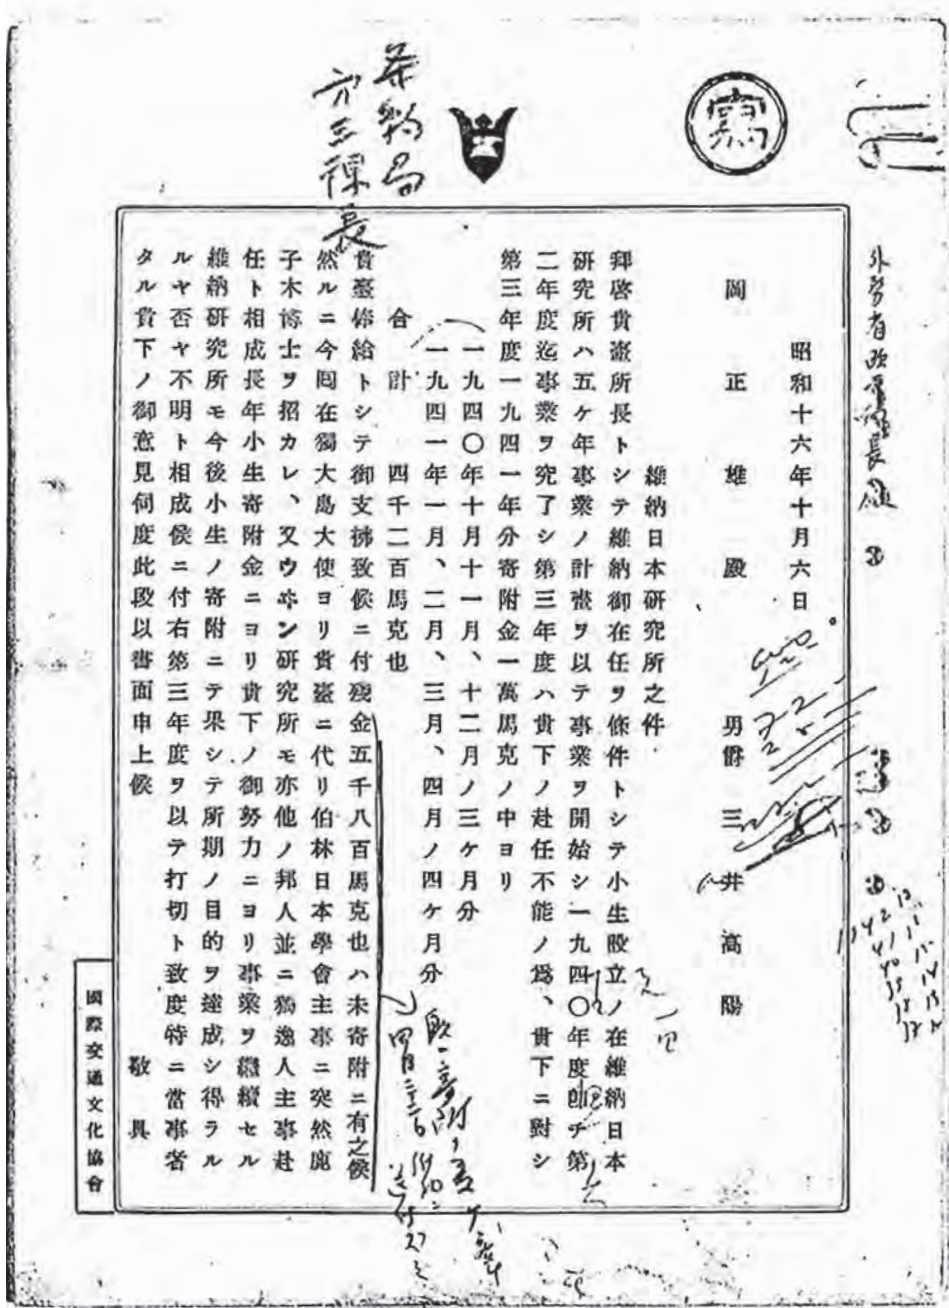 寫
条約局
第三課長
昭和十六年十月六日
男爵三井高陽
岡正雄殿
維納日本研究所之件
拜啓貴臺所長トシテ維納御在任ヲ條件トシテ小生設立ノ在維納日本
研究所ハ五ケ年事業ノ計畫ヲ以テ事業ヲ開始シ一九四〇年度卽チ第
二年度迄事業ヲ完了シ第三年度ハ貴下ノ赴任不能ノ爲、貴下ニ對シ
第三年度一九四一年分寄附金一萬馬克ノ中ヨリ
一九四〇年十月十一月、十二月ノ三ケ月分
一九四一年一月、二月、三月、四月ノ四ケ月分
合計 四千二百馬克也
貴臺俸給トシテ御支拂致候ニ付殘金五千八百馬克也ハ未寄附ニ有之候
然ルニ今囘在獨大島大使ヨリ貴臺ニ代リ伯林日本學會主事ニ突然鹿
子木博士ヲ招カレ、又ウヰン研究所モ亦他ノ邦人並ニ獨逸人主事赴
任ト相成長年小生寄附金ニヨリ貴下ノ御努力ニヨリ事業ヲ繼續セル
維納研究所モ今後小生ノ寄附ニテ果シテ所期ノ目的ヲ達成シ得ラル
ルヤ否ヤ不明ト相成候ニ付右第三年度ヲ以テ打切ト致度特ニ當事者
タル貴下ノ御意見伺度此段以書面申上候
敬具
國際交通文化協會